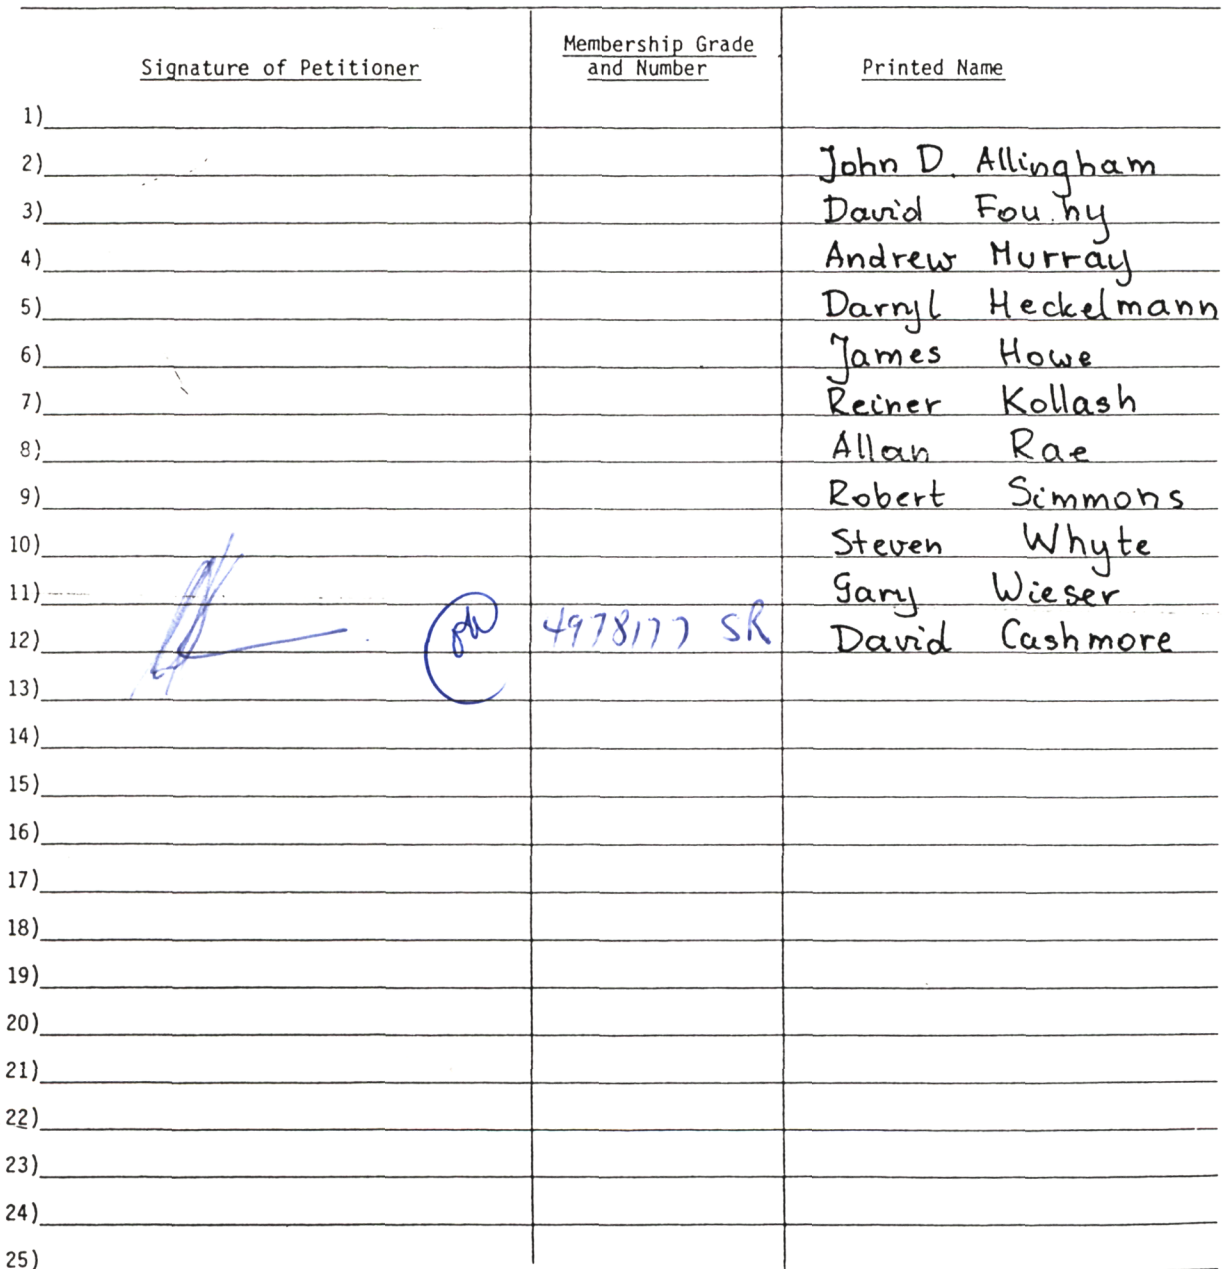 Signature of Petitioner Membership Grade and Number Printed Name
1)
2) John D. Allingham
3) David Fou.hy
4) Andrew Murray
5) Darryl Heckelmann
6) James Howe
7) Reiner Kollash
8) Allan Rae
9) Robert Simmons
10) Steven Whyte
11) Gary Wieser
12) 4978177 SR David Cashmore
13)
14)
15)
16)
17)
18)
19)
20)
21)
22)
23)
24)
25)